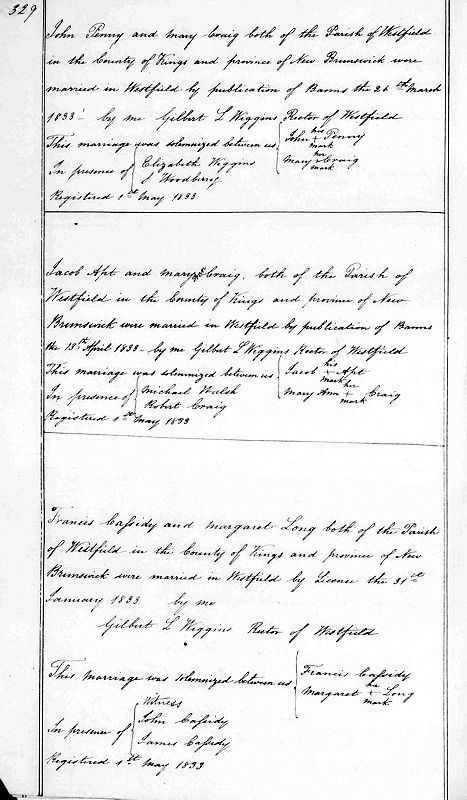 329
John Penny and Mary Craig both of the Parish of Westfield
in the County of Kings and province of New Brunswick were
married in Westfield by publication of Banns the 26th March
1833 by me Gilbert L Wiggins Rector of Westfield
This marriage was solemnized between us John his + mark Penny
Mary her + mark Craig
In presence of Elizabeth Wiggins
J Woodberry
Registered 1st May 1833
Jacob Apt and Mary Craig, both of the Parish of
Westfield in the County of Kings and province of New
Brunswick were married in Westfield by publication of Banns
the 13th April 1833 - by me Gilbert L Wiggins Rector of Westfield
This marriage was solemnized between us Jacob his + mark Apt
Mary Ann her + mark Craig
In presence of Michael Walsh
Robert Craig
Registered 1st May 1833
Francis Cassidy and Margaret Long both of the Parish
of Westfield in the County of Kings and province of New
Brunswick were married in Westfield by License the 31st
January 1833 by me
Gilbert L Wiggins Rector of Westfield
This marriage was solemnized between us Francis Cassidy
Margaret her + mark Long
Witness
In presence of John Cassidy
James Cassidy
Registered 1st May 1833